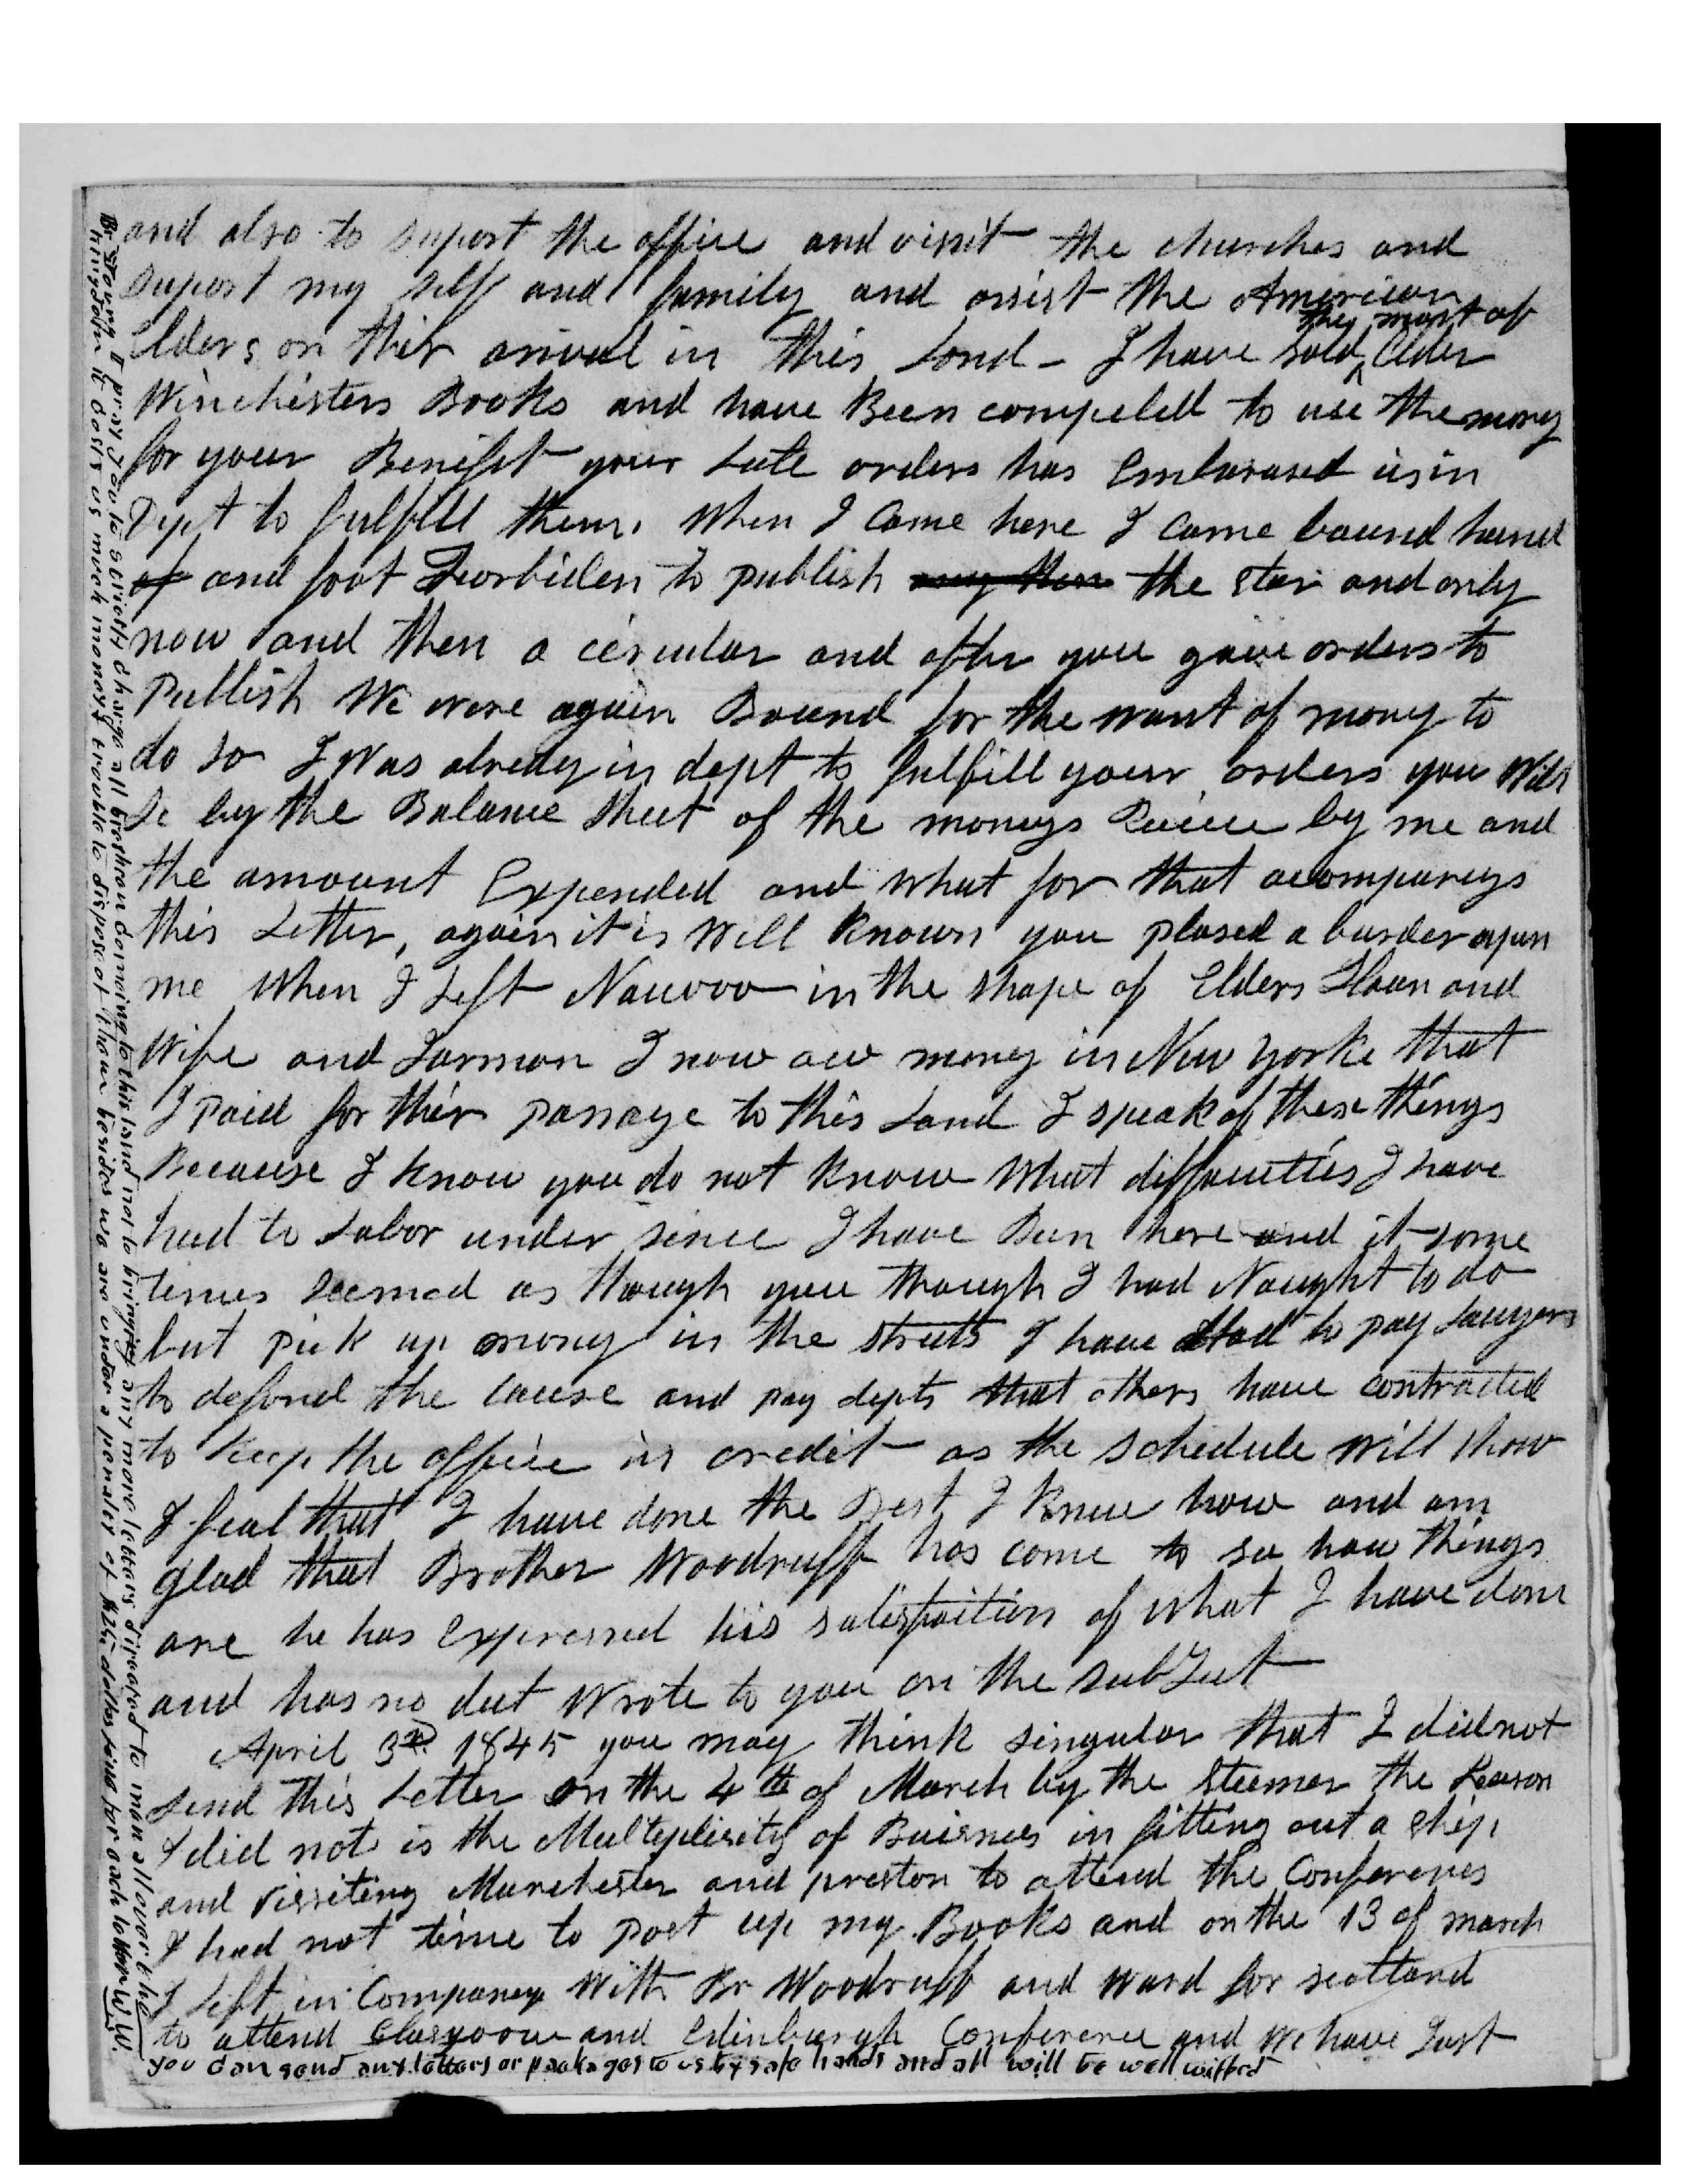 and also to suport the office and visit the churches and
suport my self and family and assist the American
Elders on thir arival in this Land - I have sold the most of Elder
Winchesters Books and have Been compeled to use the money
for your Benifit your Late orders has Embarased us in
Dept to fulfill them. When I Came here I came bound hand
of and foot Forbiden to publish any thin the star and only
now and then a circular and after you gave orders to
Publish We were again Bound for the want of money to
do so I Was alredy in dept to fulfill your orders you Will
Se by the Balance sheet of the moneys Receive by me and
the amount Expended and what for that acompanys
this Letter, again it is Well Known you plased a burden upon
me When I Left Nauvoo in the shape of Elders Sloan and
Wife and Jarman I now ow money in New Yorke that
I Paid for thir passage to this Land I speak of these things
Because I know you do not know What difficulties I have
had to Labor under since I have Been here and it some
times seemed as though you though I had Naught to do
but pick up money in the streets I have Had to pay Lawyers
to defend the cause and pay depts that others have contracted
to keep the office in credit as the schedule will show
I feal that I have done the Best I knew how and am
glad that Brother Woodruff has come to se how things
are he has Expressed his satisfaction of what I have done
and has no dout Wrote to you on the subJect
April 3rd 1845 you may think singular that I did not
send this Letter on the 4th of March by the Steemer the Reason
I did not is the Multiplisity of Buisness in fitting out a Ship
and Vissiting Manchester and preston to attend the Conferences
I had not time to post up my Books and on the 13 of march
I Left in Company With Br Woodruff and Ward for scotland
to attend Glasgoow and Edinburgh Conference and We have Just
you can send any letters or packages to us by safe hands and all will be well
Br Young I pray you to strictly charge all brethren coming to this land not to bring any more letters directed to men all over the
kingdom it costs us much money & trouble to dispose of them besides we are under a penalty of $25 dollars fine for each letter W.W.